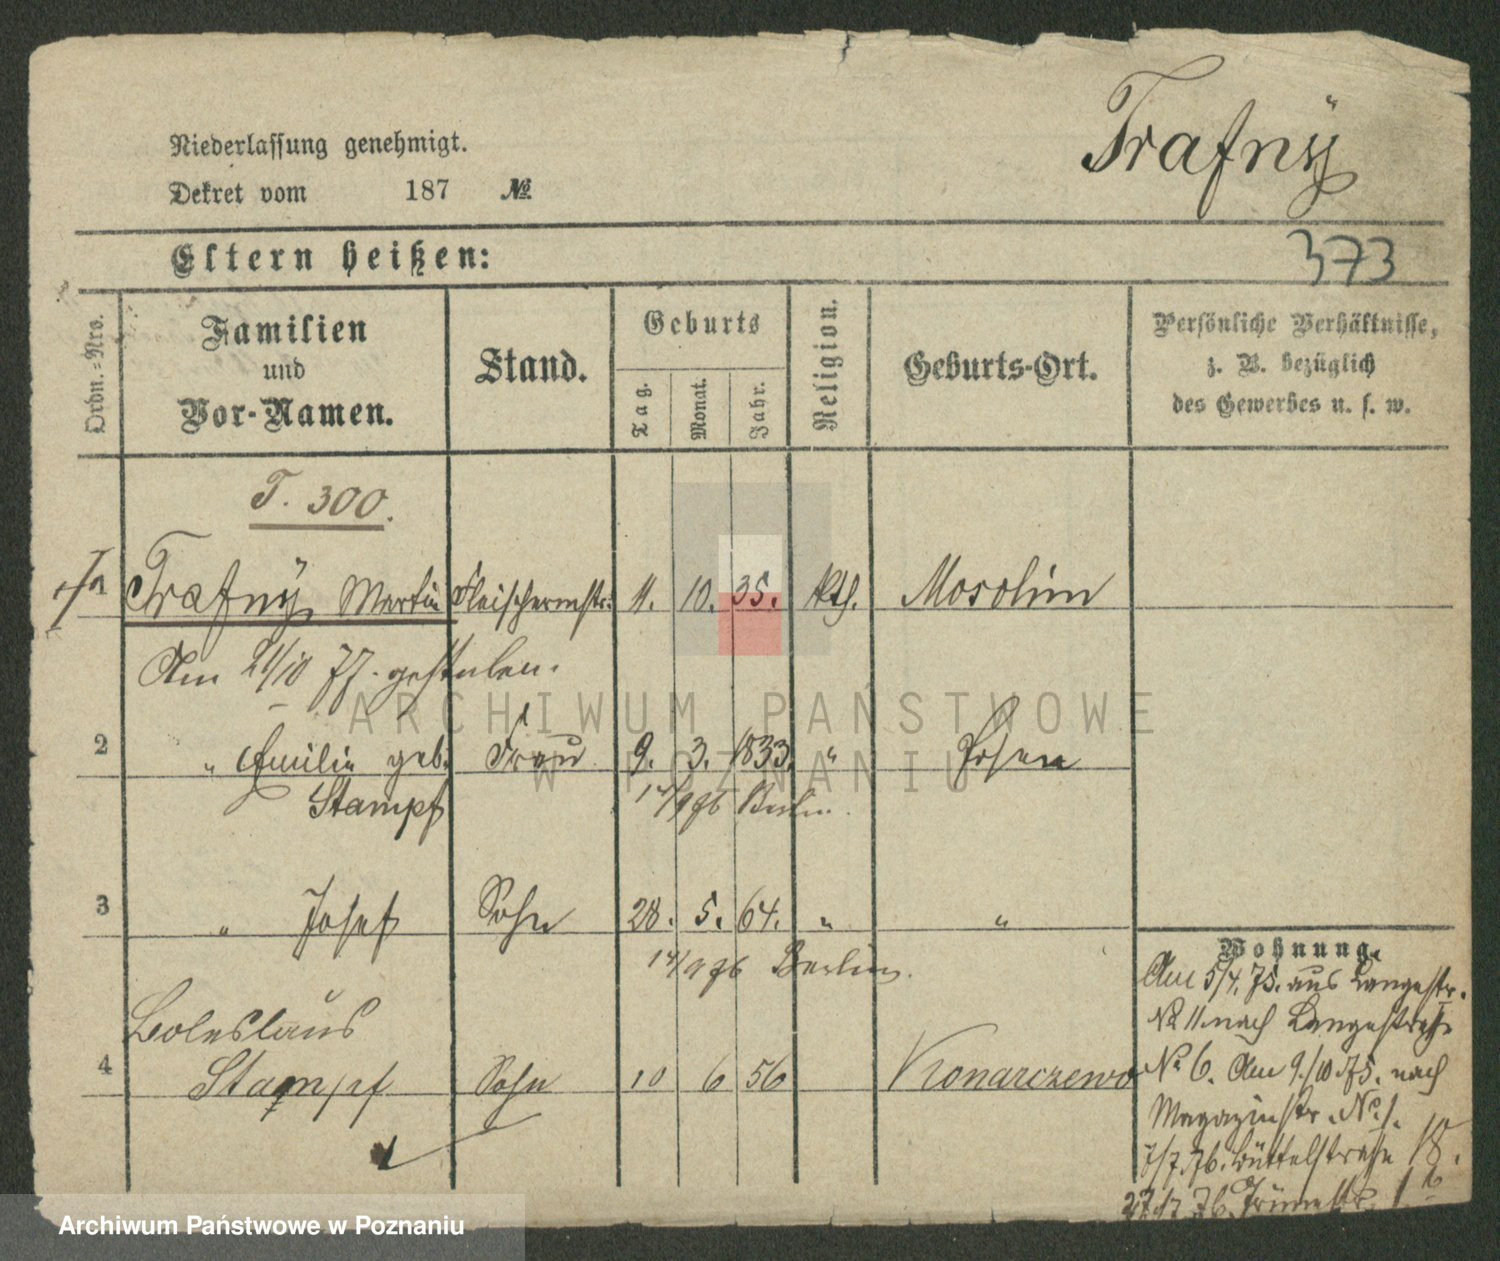 Trafnÿ
Niederlassung genehmigt.
Dekret vom 187 №
Eltern heißen:
373
Ordn.-Nro.
Familien und Vor-Namen.
Stand.
Geburts
Tag. Monat. Jahr.
Religion.
Geburts-Ort.
Persönliche Verhältnisse, z. B. bezüglich des Gewerbes u. s. w.
T. 300.
1 Trafnÿ, Martin Fleischermstr: 11. 10. 35. kth. Mosolim
Am 21/10 77. gestorben.
2 " Emilie geb. Frau 9. 3. 1833. " Posen
Stampf 14/9 96 Berlin.
3 " Josef Sohn 28. 5. 64. " "
14/9 96 Berlin.
Boleslaus
4 Stampf Sohn 10 6 56 Konarczewo
Wohnung.
Am 5/4. 75. aus Langestr.
№ 11 nach Langestraße
No 6. Am 9./10 75. nach
Magazinstr. No. 1.
7/7. 76. Büttelstraße 18.
27./7. 76.
ARCHIWUM PAŃSTWOWE
W POZNANIU
Archiwum Państwowe w Poznaniu